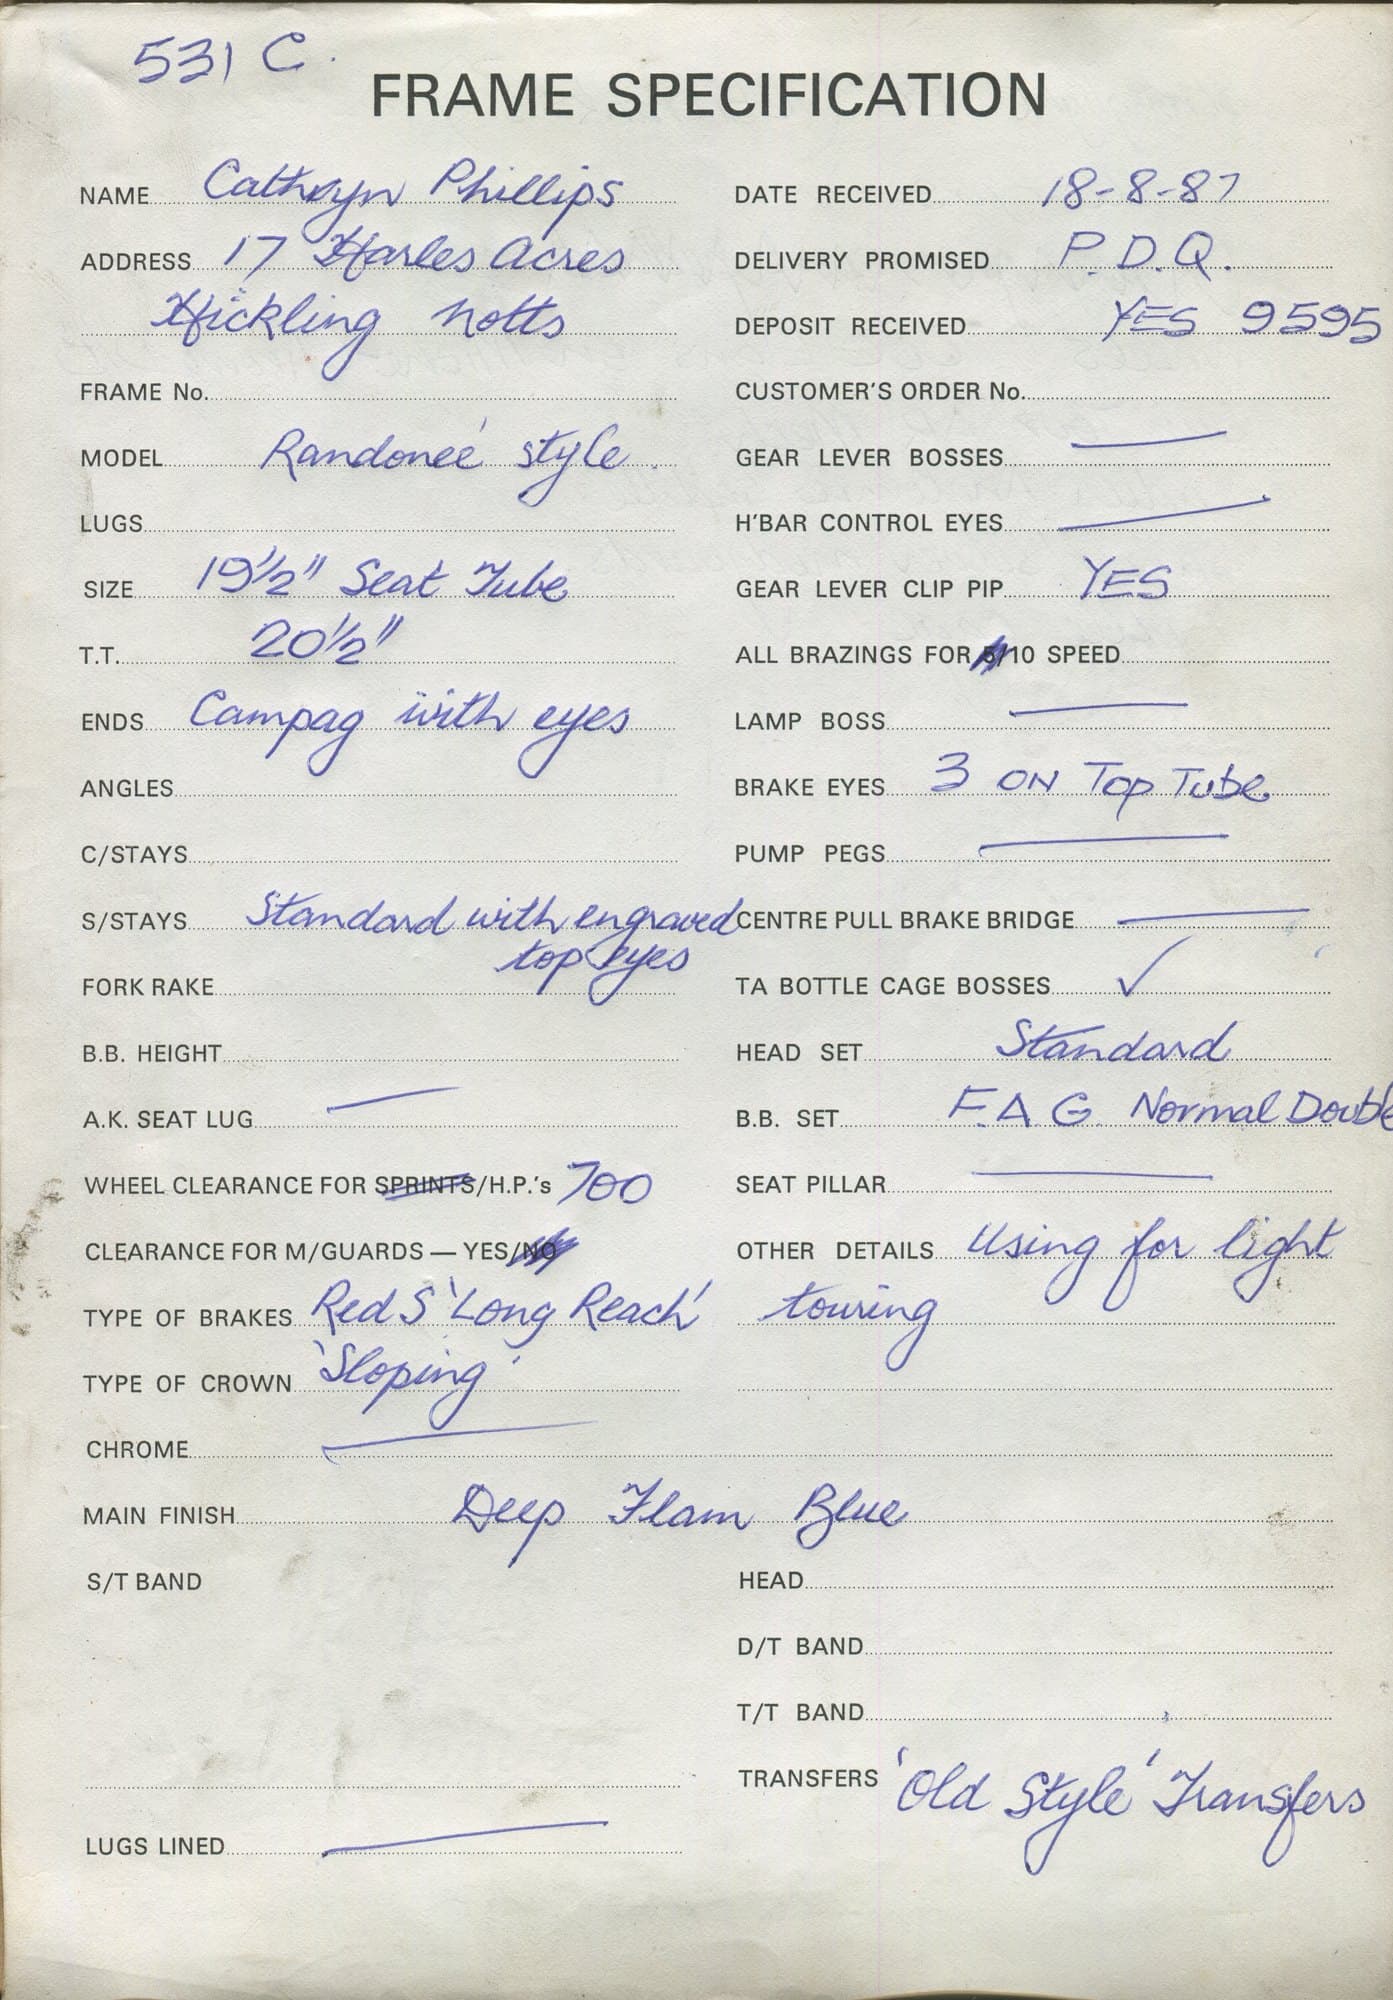 531 C.
FRAME SPECIFICATION
NAME Cathryn Phillips
ADDRESS 17 Harles Acres
Hickling Notts
FRAME No.
MODEL Randoneé style.
LUGS
SIZE 19½" Seat Tube
T.T. 20½"
ENDS Campag with eyes
ANGLES
C/STAYS
S/STAYS Standard with engraved
top eyes
FORK RAKE
B.B. HEIGHT
A.K. SEAT LUG —
WHEEL CLEARANCE FOR SPRINTS/H.P.'s 700
CLEARANCE FOR M/GUARDS — YES/NO
TYPE OF BRAKES Red S 'Long Reach'
TYPE OF CROWN 'Sloping'
CHROME —
MAIN FINISH Deep Flam Blue
S/T BAND
LUGS LINED —
DATE RECEIVED 18-8-87
DELIVERY PROMISED P.D.Q.
DEPOSIT RECEIVED YES 9595
CUSTOMER'S ORDER No.
GEAR LEVER BOSSES —
H'BAR CONTROL EYES —
GEAR LEVER CLIP PIP YES
ALL BRAZINGS FOR 5/10 SPEED
LAMP BOSS —
BRAKE EYES 3 ON Top Tube
PUMP PEGS —
CENTRE PULL BRAKE BRIDGE —
TA BOTTLE CAGE BOSSES ✓
HEAD SET Standard
B.B. SET F.A.G. Normal Double
SEAT PILLAR —
OTHER DETAILS Using for light
touring
HEAD
D/T BAND
T/T BAND
TRANSFERS 'Old Style' Transfers